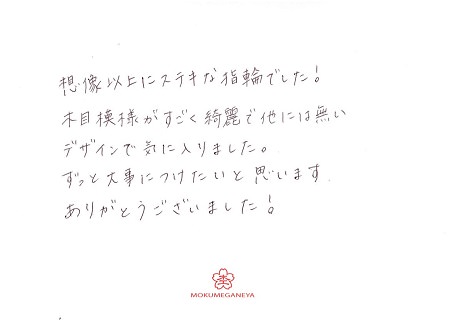 想像以上にステキな指輪でした!
木目模様がすごく綺麗で他には無い
デザインで気に入りました。
ずっと大事につけたいと思います.
ありがとうございました!
MOKUMEGANEYA